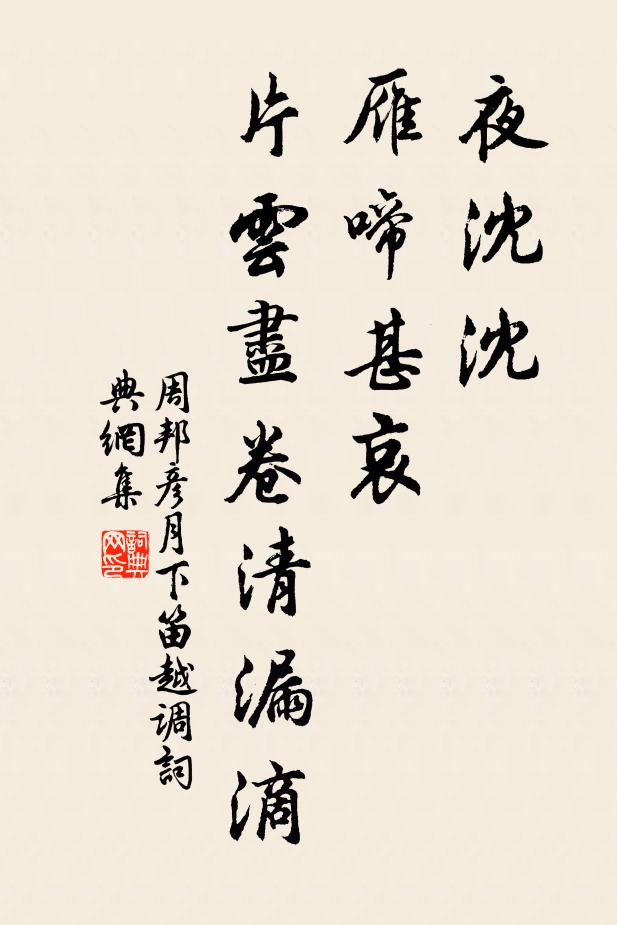 夜沈沈
雁啼甚哀
片雲盡卷清漏滴
周邦彦月下笛越调詞
典網集
詞典
网印